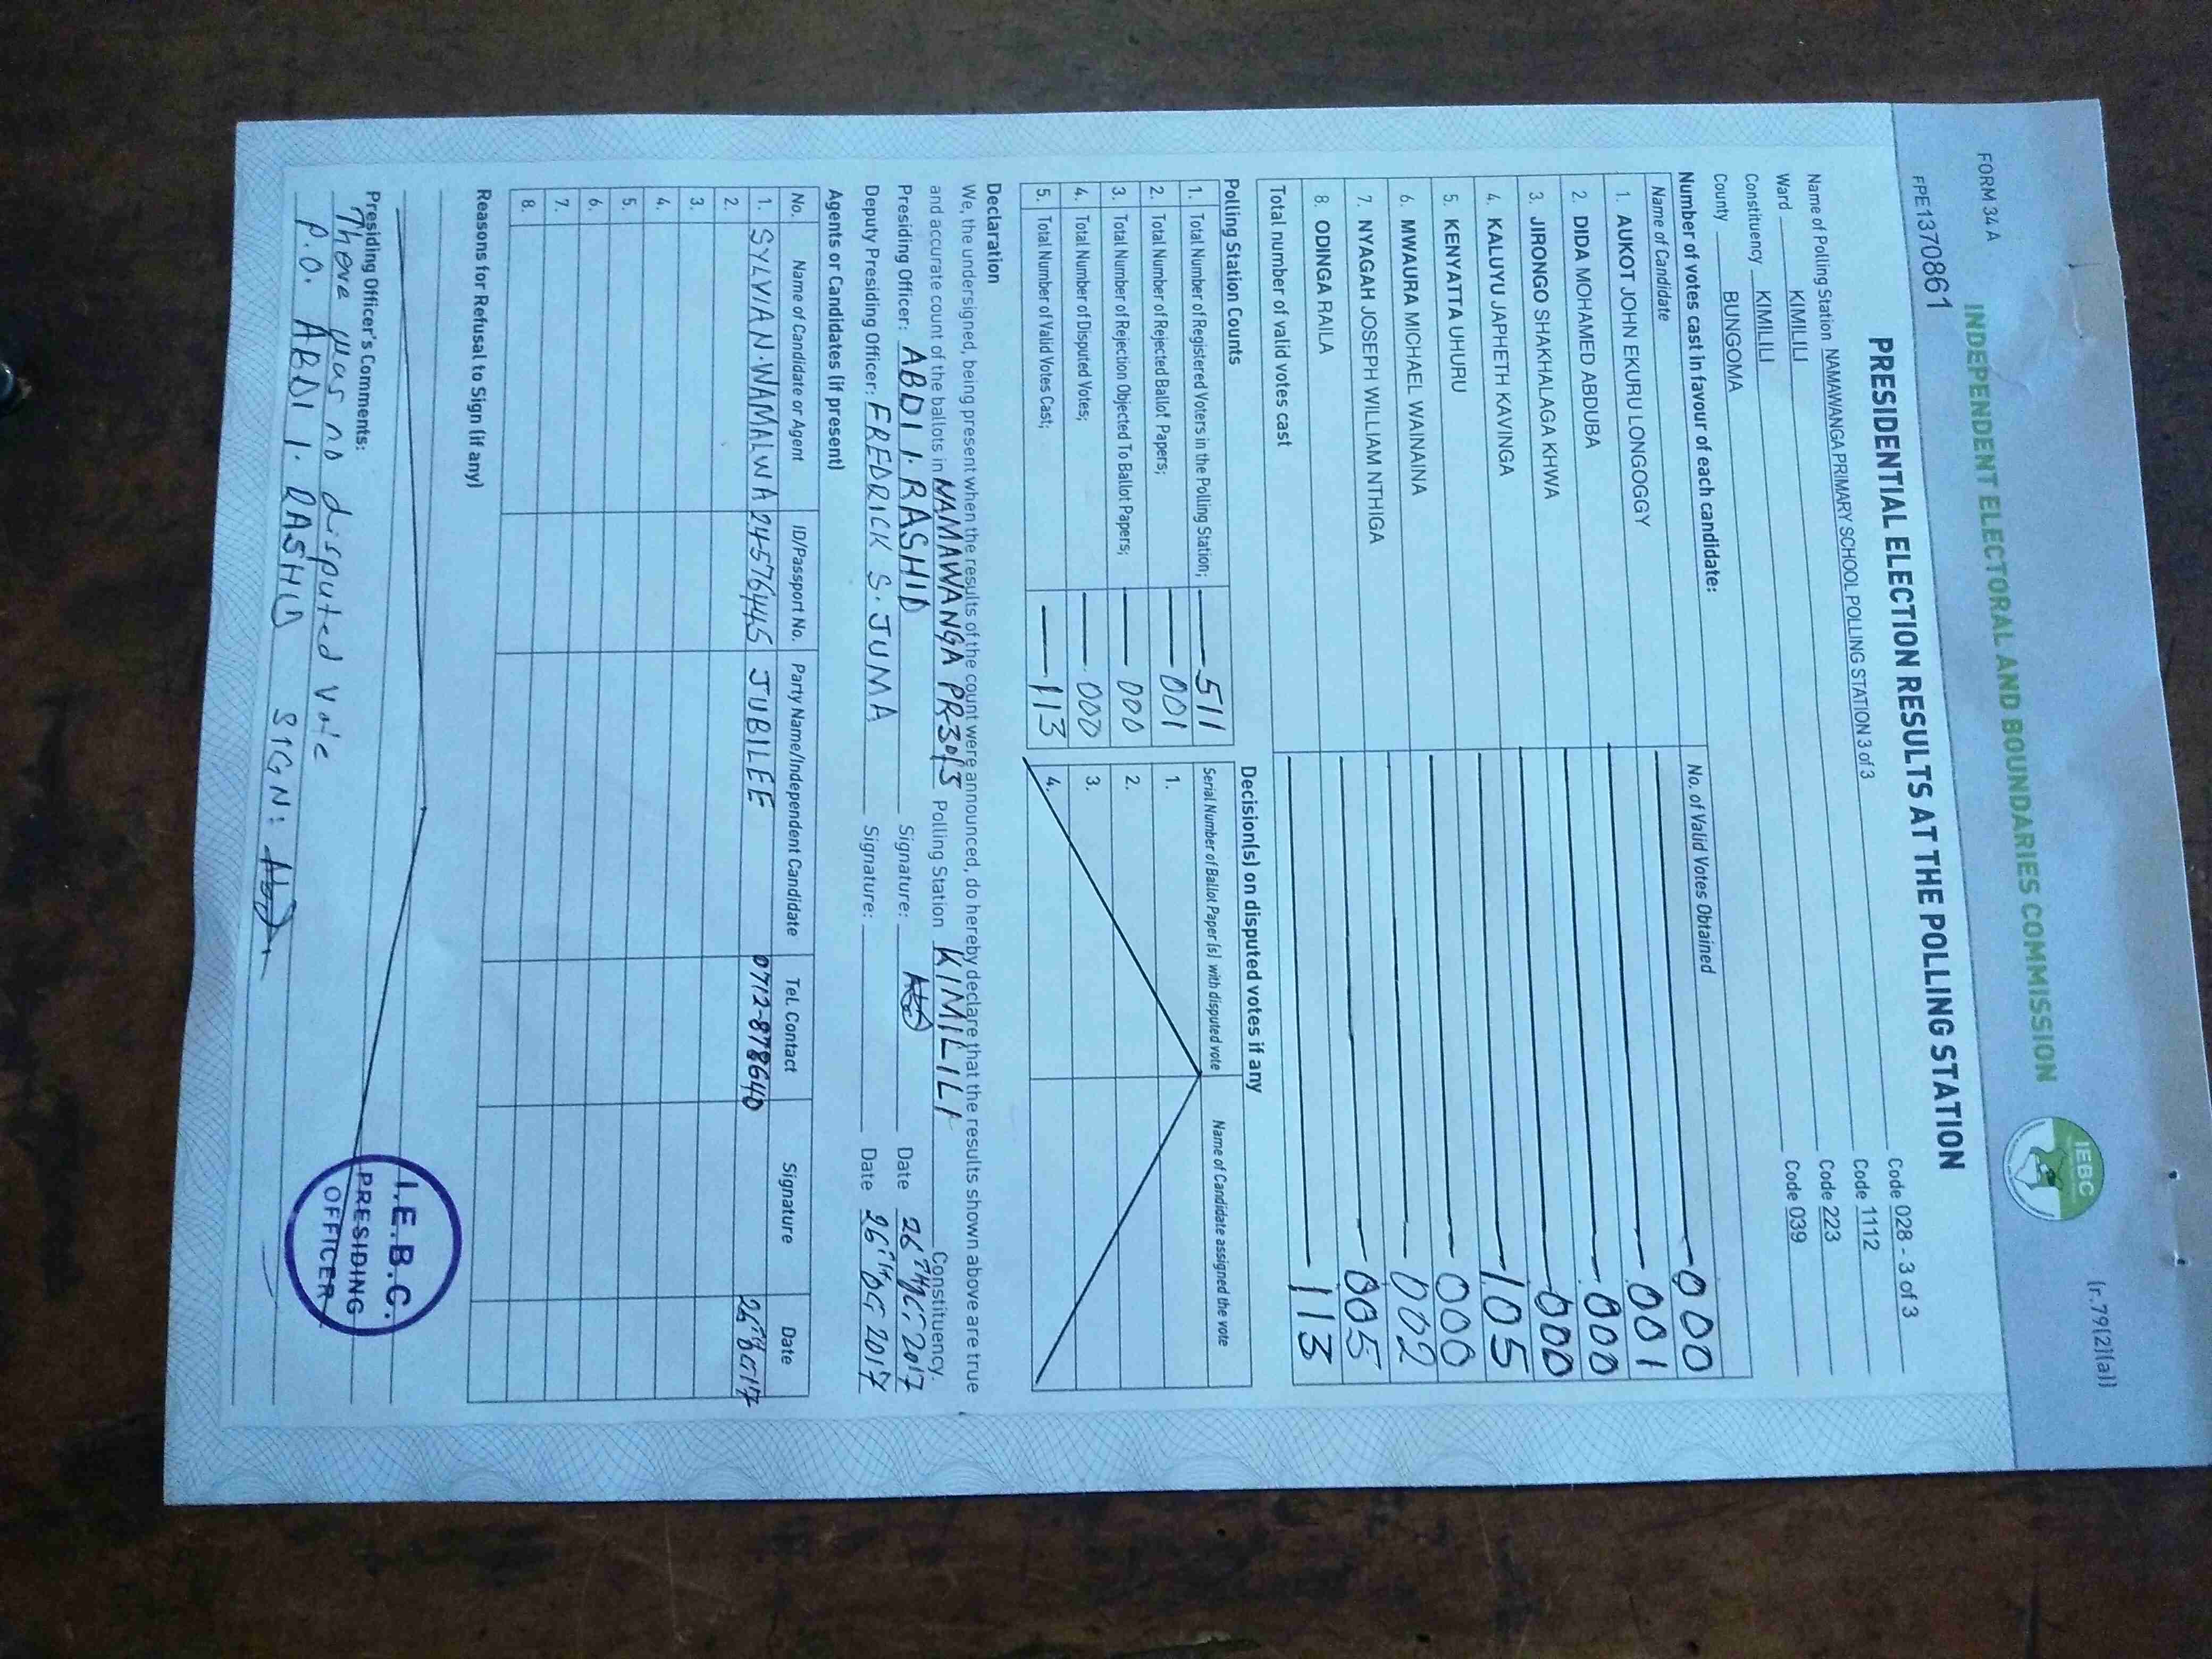 FORM 34 A
(r.79(2)(a))
FPE1370861
INDEPENDENT ELECTORAL AND BOUNDARIES COMMISSION
IEBC
PRESIDENTIAL ELECTION RESULTS AT THE POLLING STATION
Name of Polling Station NAMAWANGA PRIMARY SCHOOL POLLING STATION 3 of 3 Code 028 - 3 of 3
Ward KIMILILI Code 1112
Constituency KIMILILI Code 223
County BUNGOMA Code 039
Number of votes cast in favour of each candidate:
Name of Candidate No. of Valid Votes Obtained
1. AUKOT JOHN EKURU LONGOGGY 000
2. DIDA MOHAMED ABDUBA 001
3. JIRONGO SHAKHALAGA KHWA 000
4. KALUYU JAPHETH KAVINGA 000
5. KENYATTA UHURU 105
6. MWAURA MICHAEL WAINAINA 000
7. NYAGAH JOSEPH WILLIAM NTHIGA 002
8. ODINGA RAILA 005
Total number of valid votes cast 113
Polling Station Counts
1. Total Number of Registered Voters in the Polling Station; 511
2. Total Number of Rejected Ballot Papers; 001
3. Total Number of Rejection Objected To Ballot Papers; 000
4. Total Number of Disputed Votes; 000
5. Total Number of Valid Votes Cast; 113
Decision(s) on disputed votes if any
Serial Number of Ballot Paper (s) with disputed vote Name of Candidate assigned the vote
1.
2.
3.
4.
Declaration
We, the undersigned, being present when the results of the count were announced, do hereby declare that the results shown above are true
and accurate count of the ballots in NAMAWANGA PR 3of3 Polling Station KIMILILI Constituency.
Presiding Officer: ABDI I. RASHID Signature: Date 26TH OCT 2017
Deputy Presiding Officer: FREDRICK S. JUMA Signature: Date 26TH OCT 2017
Agents or Candidates (if present)
No. Name of Candidate or Agent ID/Passport No. Party Name/Independent Candidate Tel. Contact Signature Date
1. SYLVIA N. WAMALWA 24576445 JUBILEE 0712-878640 26TH OCT 17
2.
3.
4.
5.
6.
7.
8.
Reasons for Refusal to Sign (if any)
Presiding Officer's Comments:
There was no disputed vote
P.O. ABDI I. RASHID SIGN:
I.E.B.C.
PRESIDING
OFFICER